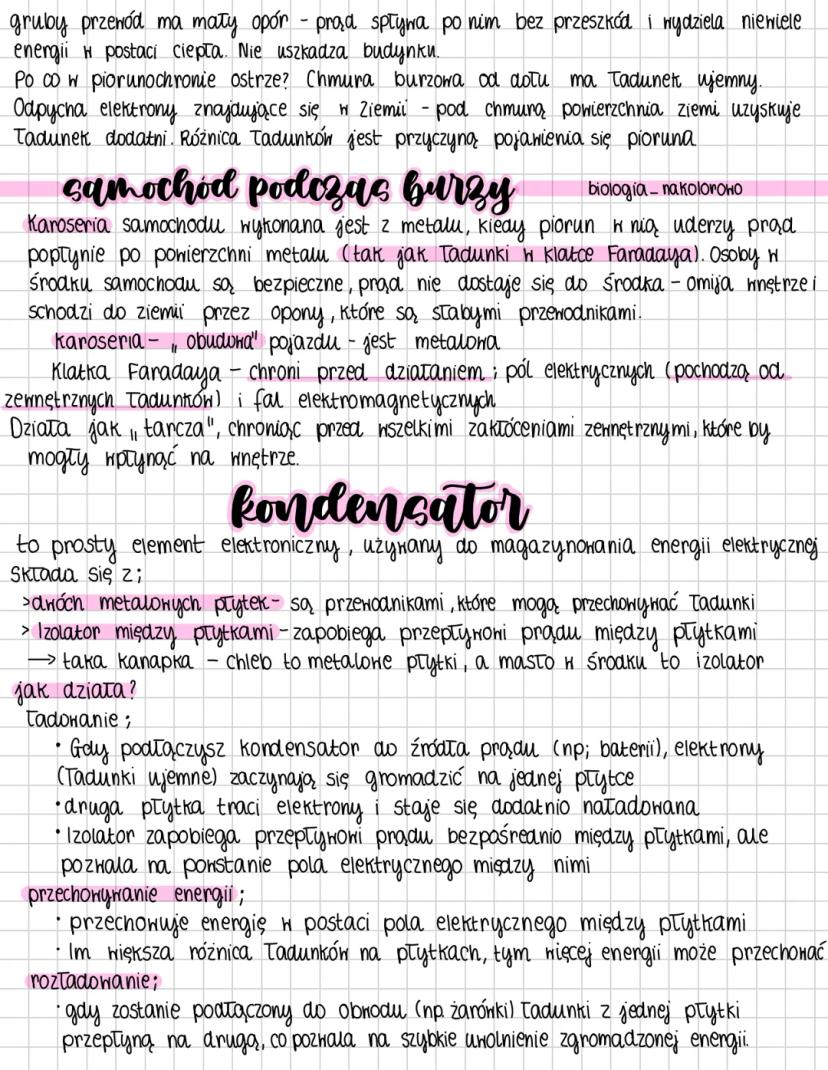 gruby przewód ma mały opór - prąd spływa po nim bez przeszkód i wydziela niewiele
energii w postaci ciepła. Nie uszkadza budynku.
Po co w piorunochronie ostrze? Chmura burzowa od dołu ma ładunek ujemny.
Odpycha elektrony znajdujące się w Ziemii - pod chmurą powierzchnia ziemi uzyskuje
ładunek dodatni. Różnica ładunków jest przyczyną pojawienia się pioruna
samochód podczas burzy
biologia_nakolorowo
Karoseria samochodu wykonana jest z metalu, kiedy piorun w nią uderzy prąd
popłynie po powierzchni metalu (tak jak ładunki w klatce Faradaya). Osoby w
środku samochodu są bezpieczne, prąd nie dostaje się do środka - omija wnętrze i
schodzi do ziemii przez opony, które są słabymi przewodnikami.
karoseria - „obudowa" pojazdu - jest metalowa
Klatka Faradaya - chroni przed działaniem ; pól elektrycznych (pochodzą od
zewnętrznych ładunków) i fal elektromagnetycznych
Działa jak „tarcza", chroniąc przed wszelkimi zakłóceniami zewnętrznymi, które by
mogły wpłynąć na wnętrze.
kondensator
to prosty element elektroniczny, używany do magazynowania energii elektrycznej
Składa się z;
>dwóch metalowych płytek - są przewodnikami, które mogą przechowywać ładunki
> Izolator między płytkami - zapobiega przepływowi prądu między płytkami
→ taka kanapka - chleb to metalowe płytki, a masło w środku to izolator
jak działa?
ładowanie ;
• Gdy podłączysz kondensator do źródła prądu (np; baterii), elektrony
(ładunki ujemne) zaczynają się gromadzić na jednej płytce
• druga płytka traci elektrony i staje się dodatnio naładowana
• Izolator zapobiega przepływowi prądu bezpośrednio między płytkami, ale
pozwala na powstanie pola elektrycznego między nimi
przechowywanie energii ;
• przechowuje energię w postaci pola elektrycznego między płytkami
• Im większa różnica ładunków na płytkach, tym więcej energii może przechować
rozładowanie;
• gdy zostanie podłączony do obwodu (np. żarówki) ładunki z jednej płytki
przepłyną na drugą, co pozwala na szybkie uwolnienie zgromadzonej energii.